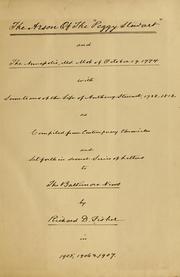 The Arson Of The "Peggy Stewart"
and
The Annapolis, Md. Mob of October 19, 1774
with
Some Items of the Life of Anthony Stewart, 1738, 1812.
as
Compiled from Contemporary Chronicles
and
Set forth in several Series of Letters
to
The Baltimore News
by
Richard D. Fisher
in
1905, 1906 & 1907.